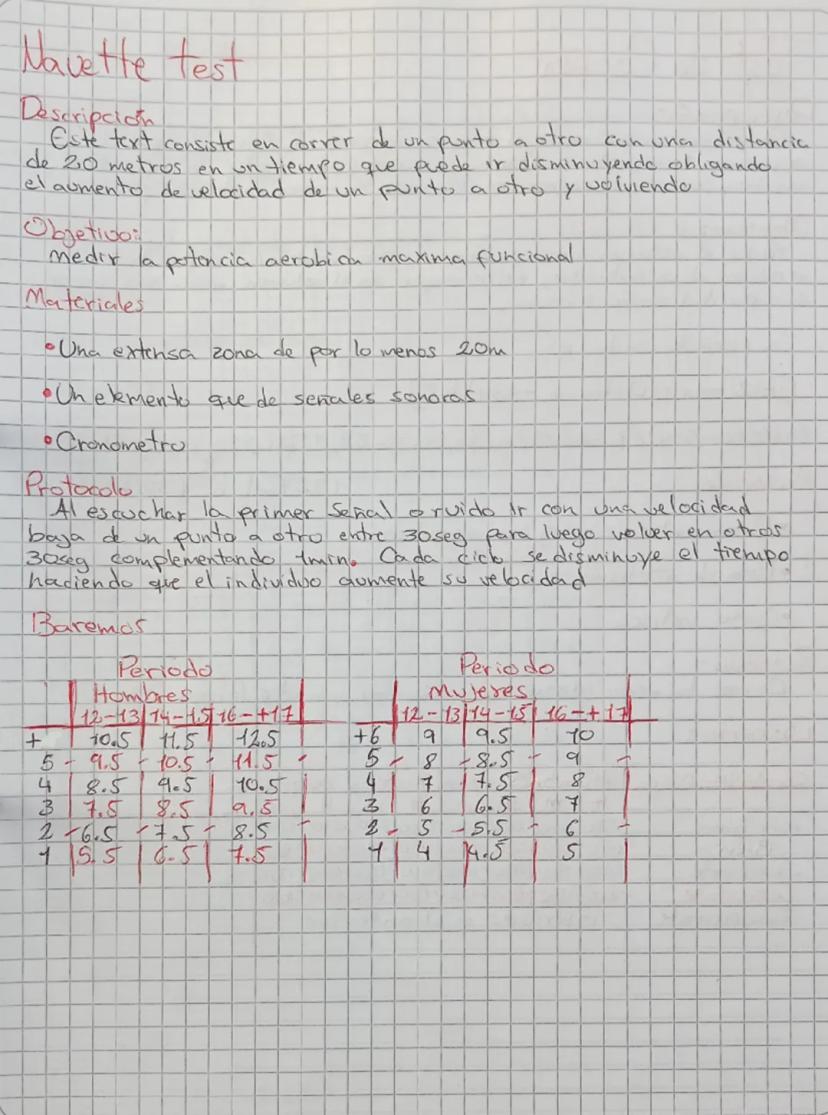 Navette test
Descripcion
Este text consiste en correr de un punto a otro con una distancia
de 20 metros en un tiempo que puede ir disminuyendo obligando
el aumento de velocidad de un punto a otro y volviendo
Objetivo:
medir la potencia aerobica maxima funcional
Materiales
• Una extensa zona de por lo menos 20m
• Un elemento que de señales sonoras
• Cronometro
Protocolo
Al escuchar la primer señal o ruido ir con una velocidad
baja de un punto a otro entre 30seg para luego volver en otros
30seg complementando 1min. Cada ciclo se disminuye el tiempo
haciendo que el individuo aumente su velocidad
Baremos
Periodo
Hombres
12-13 14-15 16-+17
+ 10.5 11.5 12.5
5 - 9.5 - 10.5 - 11.5 -
4 8.5 9.5 10.5
3 7.5 8.5 9.5
2 - 6.5 - 7.5 - 8.5 -
1 5.5 6.5 7.5
Periodo
Mujeres
12-13 14-15 16-+17
+6 9 9.5 10
5 - 8 - 8.5 - 9 -
4 7 7.5 8
3 6 6.5 7
2 - 5 - 5.5 - 6 -
1 4 4.5 5